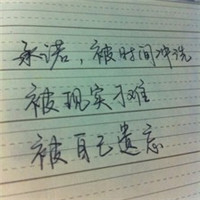 承诺，被时间冲洗
被现实刁难
被自己遗忘